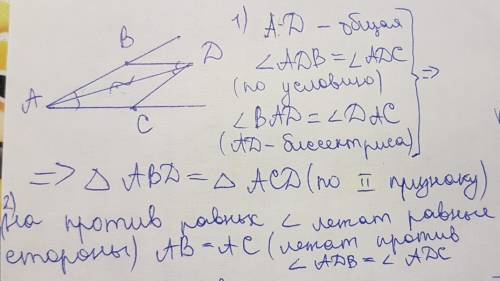 1) A-D - общая
∠ADB = ∠ADC
(по условию)
∠BAD = ∠DAC
(AD - биссектриса)
=>
A
B
D
C
=> △ ABD = △ ACD (по II признаку)
2)
(на против равных ∠ лежат равные
стороны) AB = AC (лежат против
∠ ADB = ∠ ADC